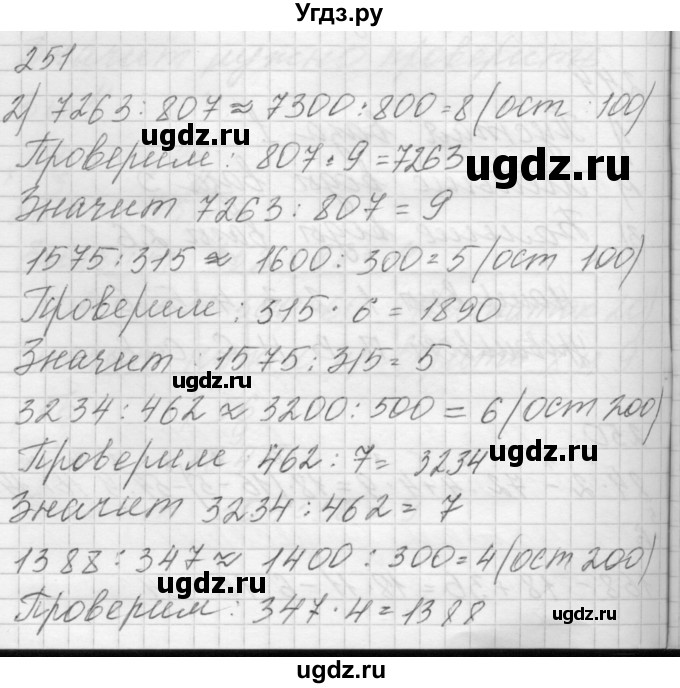 Угдз.ру
251
2) 7263 : 807 ≈ 7300 : 800 = 8 (ост 100)
ugdz.ru
Проверим : 807 · 9 = 7263
ugdz.ru
Значит 7263 : 807 = 9
1575 : 315 ≈ 1600 : 300 = 5 (ост 100)
Проверим : 315 · 6 = 1890
Значит : 1575 : 315 = 5
ugdz.ru
3234 : 462 ≈ 3200 : 500 = 6 (ост 200)
Проверим 462 : 7 = 3234
ugdz.ru
Значит 3234 : 462 = 7
1388 : 347 ≈ 1400 : 300 = 4 (ост 200)
ugdz.ru
Проверим : 347 · 4 = 1388
ugdz.ru
ugdz.ru